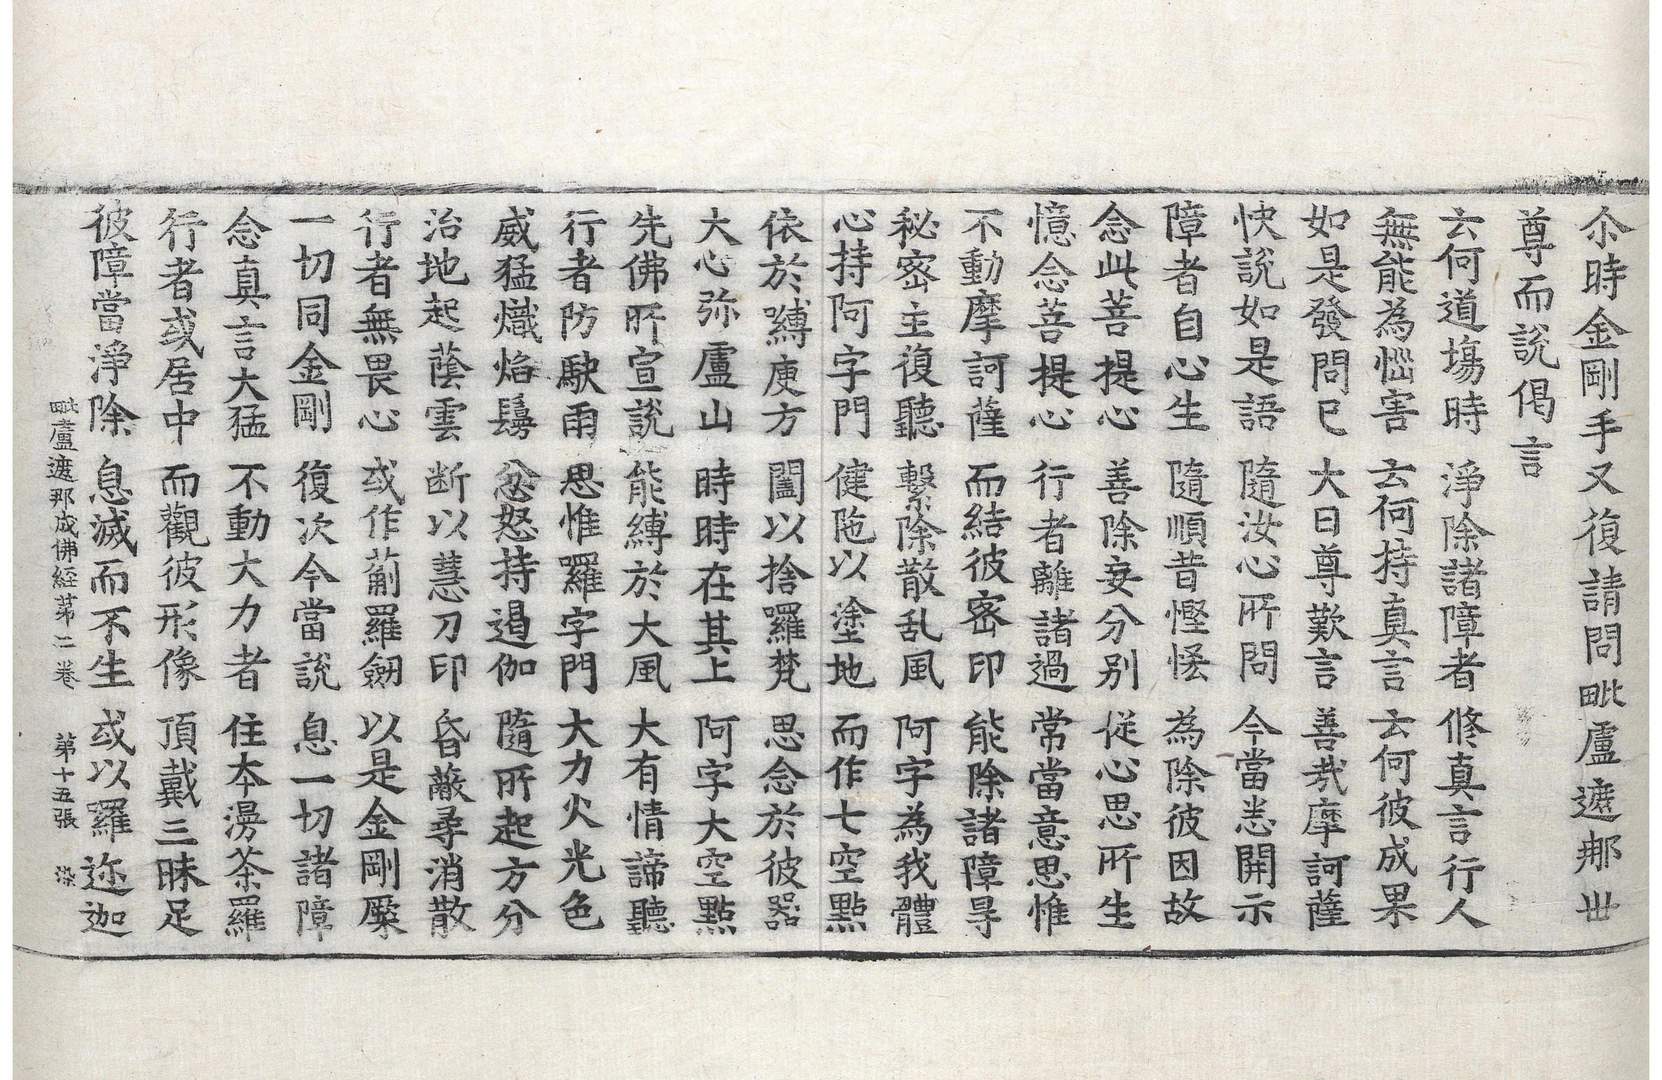 尒時金剛手又復請問毗盧遮那世
尊而說偈言
云何道塲時 淨除諸障者 修真言行人
無能為惱害 云何持真言 云何彼成果
如是發問已 大日尊歎言 善哉摩訶薩
快說如是語 隨汝心所問 今當悉開示
障者自心生 隨順昔慳悋 為除彼因故
念此菩提心 善除妄分別 従心思所生
憶念菩提心 行者離諸過 常當意思惟
不動摩訶薩 而結彼密印 能除諸障㝵
秘密主復聽 繫除散乱風 阿字為我體
心持阿字門 健陁以塗地 而作七空點
依於嚩庾方 闔以捨囉梵 思念於彼器
大心弥盧山 時時在其上 阿字大空點
先佛所宣說 能縛於大風 大有情諦聽
行者防駛雨 思惟囉字門 大力火光色
威猛熾焰鬘 忿怒持遏伽 隨所起方分
治地起蔭雲 断以慧刀印 昏蔽尋消散
行者無畏心 或作蘮羅劒 以是金剛橜
一切同金剛 復次今當說 息一切諸障
念真言大猛 不動大力者 住本漫茶羅
行者或居中 而觀彼形像 頂戴三昧足
彼障當淨除 息滅而不生 或以羅迩迦
毗盧遮那成佛経苐二卷 苐十五張 染